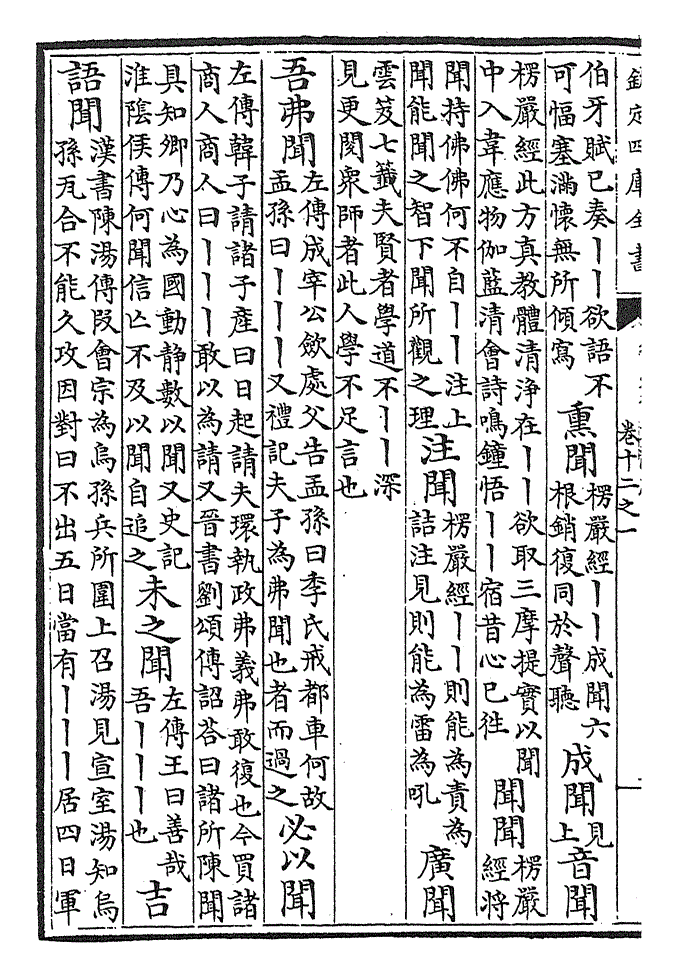 欽定四庫全書 卷十二之一
伯牙賦已奏丨丨欲語不可愊塞滿懷無所傾寫 熏聞 楞嚴經丨丨成聞六根銷復同於聲聽 成聞 見上 音聞
楞嚴經此方真教體清淨在丨丨欲取三摩提實以聞中入韋應物伽藍清會詩鳴鐘悟丨丨宿昔心已往 聞聞 楞嚴經將
聞持佛佛何不自丨丨注上聞能聞之智下聞所觀之理 注聞 楞嚴經丨丨則能為責為詰注見則能為雷為吼 廣聞
雲笈七籤夫賢者學道不丨丨深見更閱衆師者此人學不足言也
吾弗聞 左傳成宰公斂處父告孟孫曰季氏戒都車何故孟孫曰丨丨丨又禮記夫子為弗聞也者而過之 必以聞
左傳韓子請諸子產曰日起請夫環執政弗義弗敢復也今買諸商人商人曰丨丨丨敢以為請又晉書劉頌傳詔荅曰諸所陳聞
具知卿乃心為國動靜數以聞又史記淮陰侯傳何聞信亡不及以聞自追之 未之聞 左傳王曰善哉吾丨丨丨也 吉
語聞 漢書陳湯傳段會宗為烏孫兵所圍上召湯見宣室湯知烏孫瓦合不能久攻因對曰不出五日當有丨丨丨居四日軍